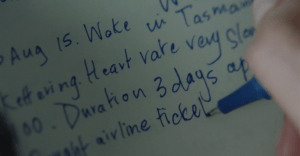 Aug 15. Woke in Tasman
Kettering. Heart rate very slow
00. Duration 3 days ap
ght airline ticket